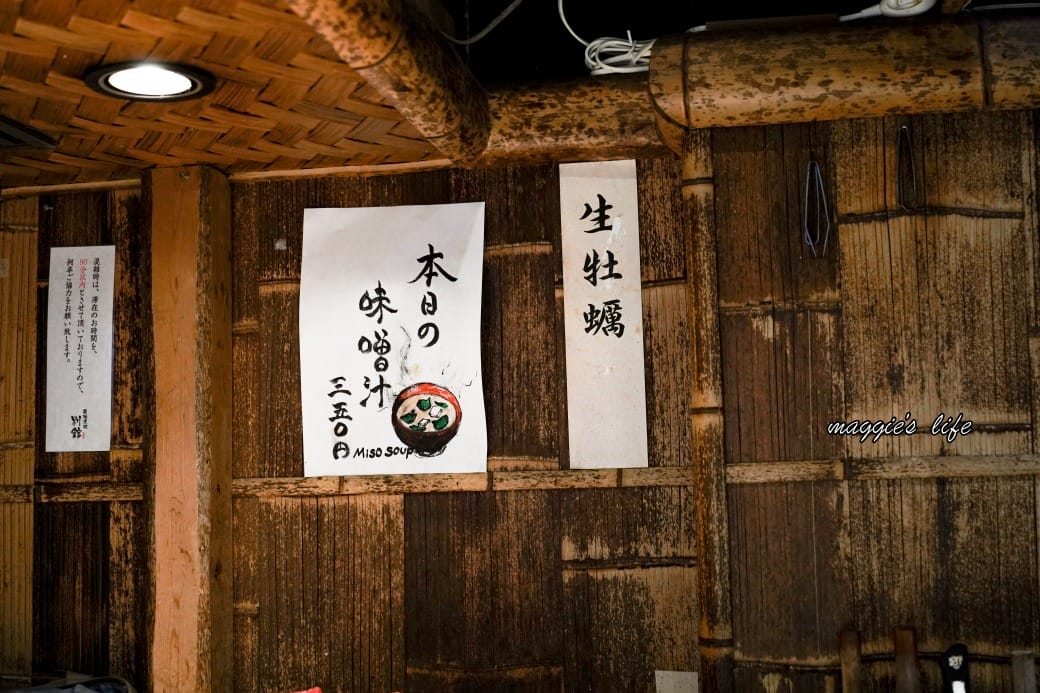 生牡蠣
本日の
味噌汁
三五〇円
MISO SOUP
混雑時は、滞在のお時間を、
90分以内とさせて頂いておりますので、
何卒ご協力をお願い致します。
別館
maggie's life